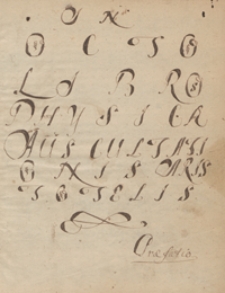 IN
OCTO
LIBRO
PHYSICÆ
AUSCULTATI
ONIS ARIS
TOTELIS
Præfatio.